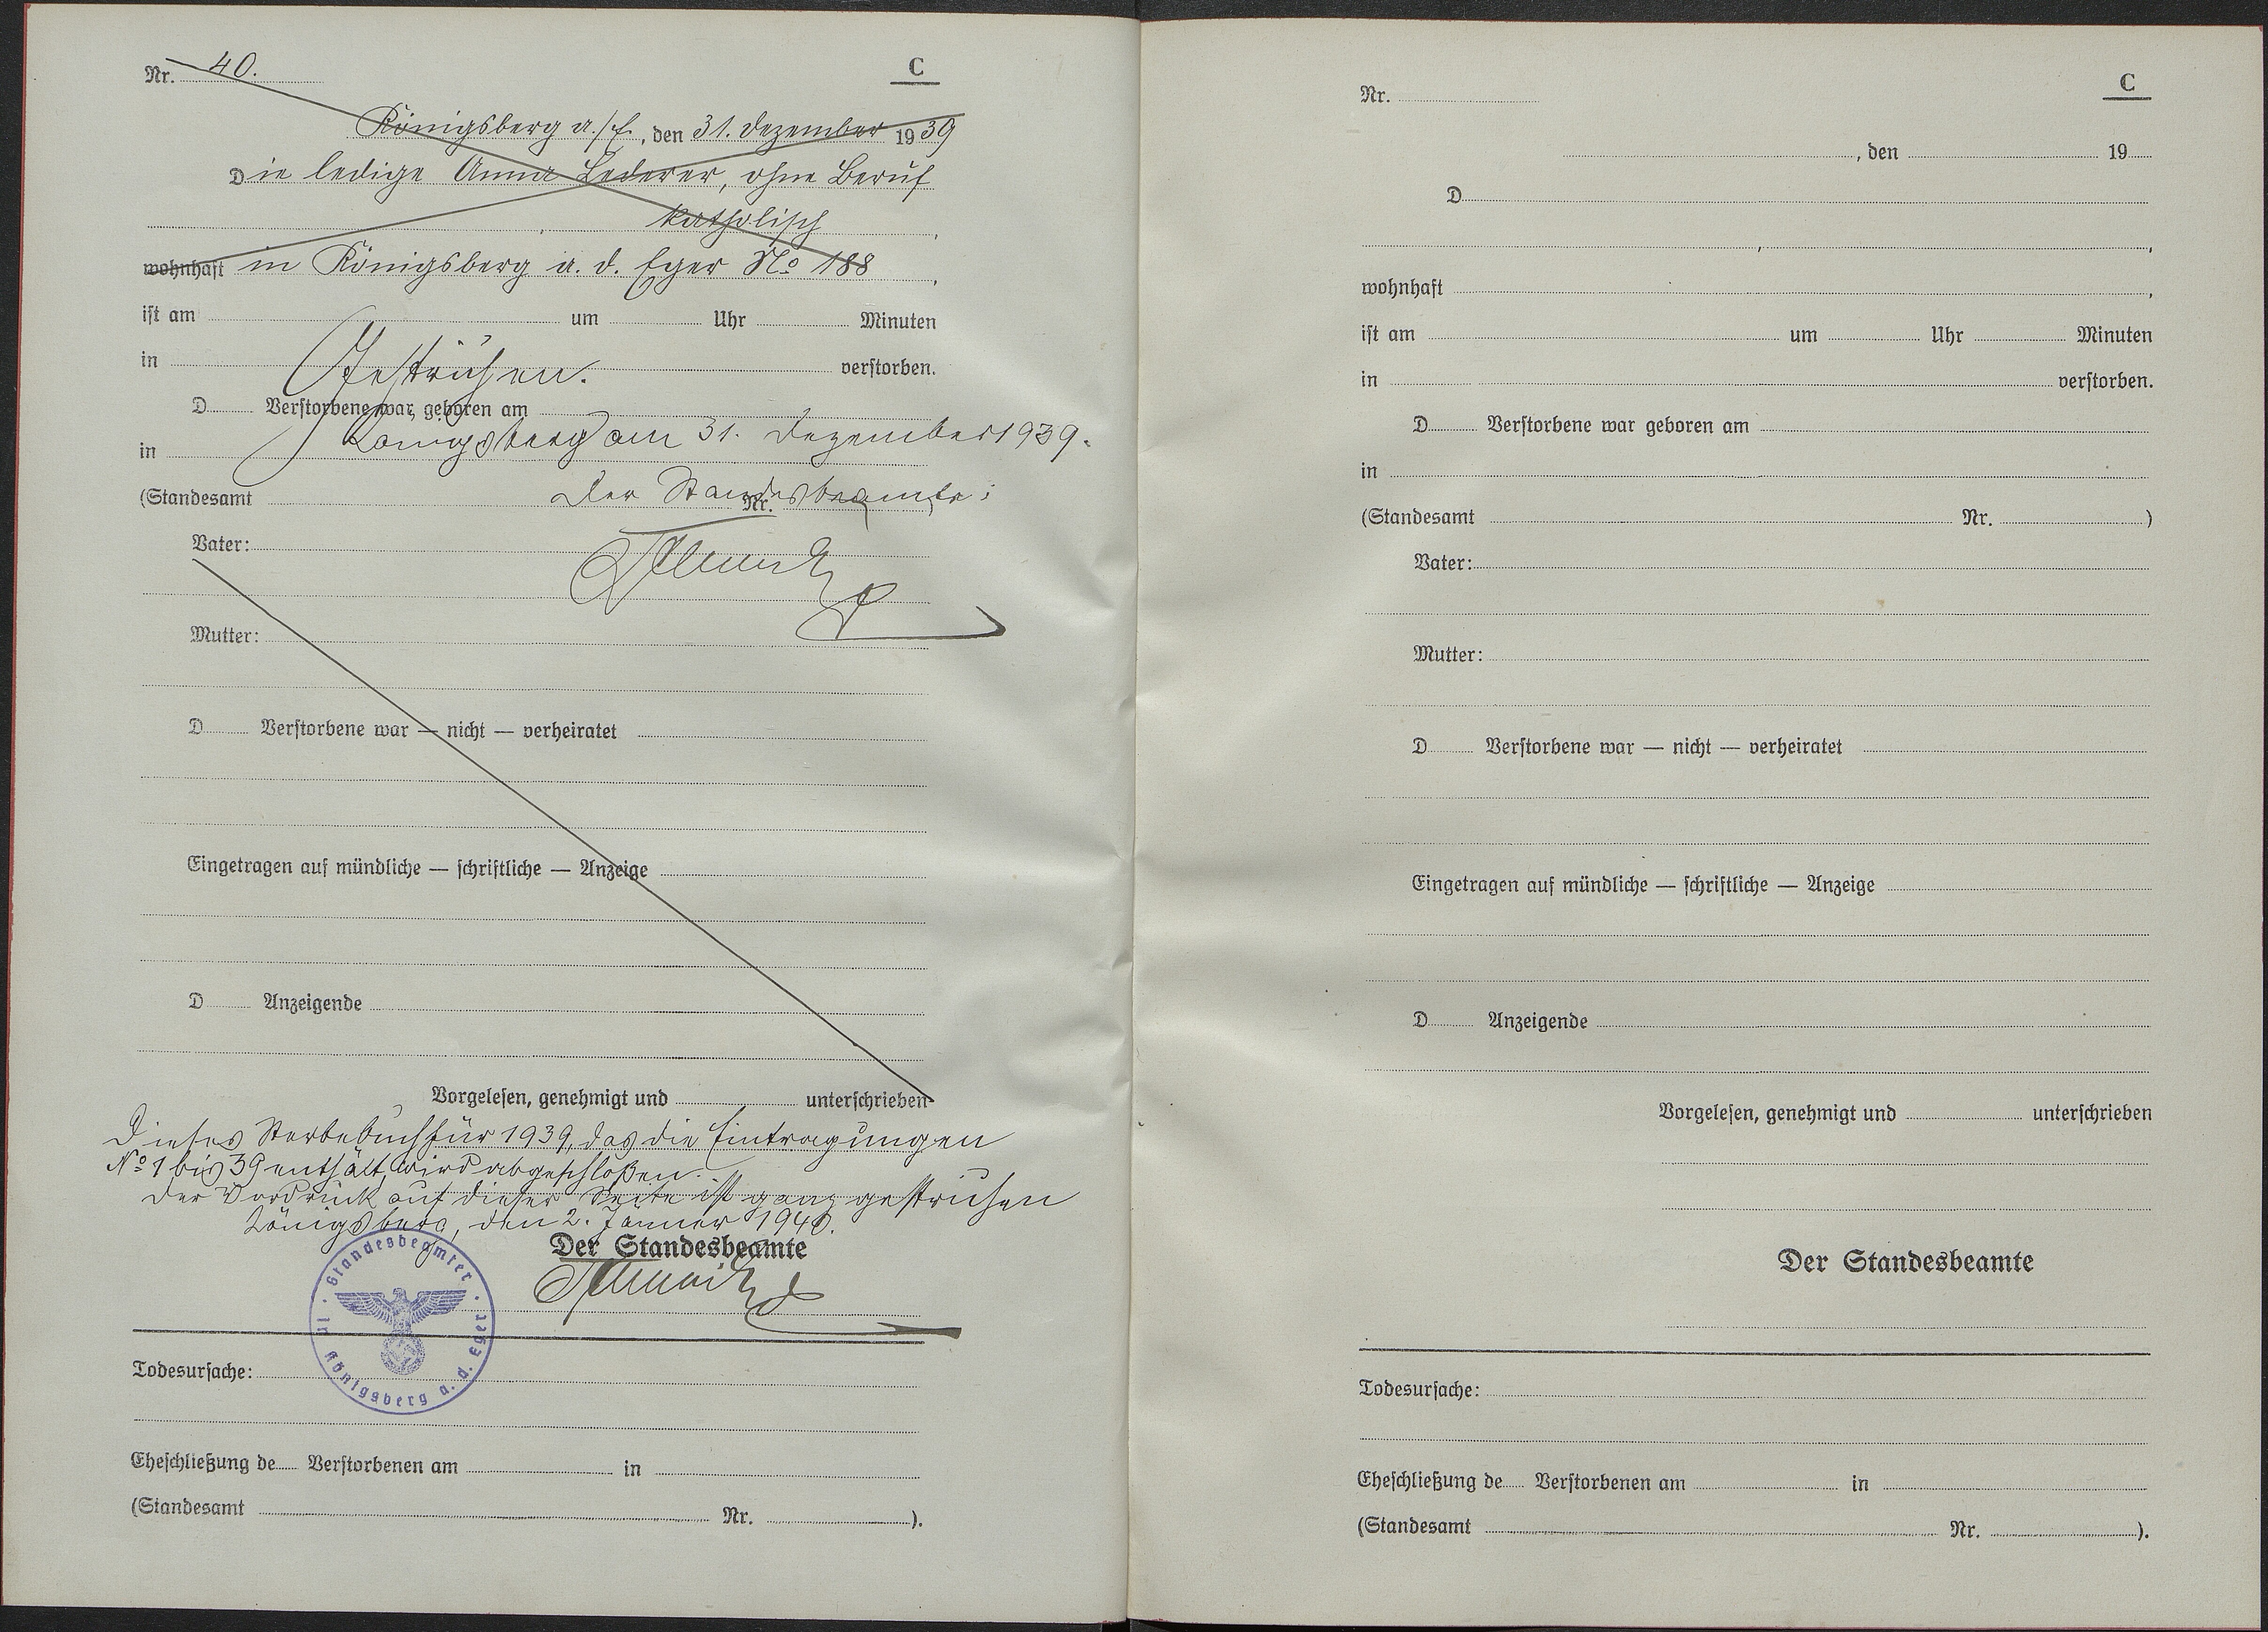 Nr. 40.
C
Königsberg a./E., den 31. Dezember 1939
Die ledige Anna Lederer, ohne Beruf
katholisch,
wohnhaft in Königsberg a. d. Eger No 188,
ist am um Uhr Minuten
in Gestrichen. verstorben.
D Verstorbene war geboren am
Königsberg am 31. Dezember 1939.
in
Der Standesbeamte:
(Standesamt Nr.
Vater:
Mutter:
D Verstorbene war — nicht — verheiratet
Eingetragen auf mündliche — schriftliche — Anzeige
D Anzeigende
Vorgelesen, genehmigt und unterschrieben
Dieses Sterbebuch für 1939, das die Eintragungen
No 1 bis 39 enthält, wird abgeschloßen.
Der Vordruck auf dieser Seite ist ganz gestrichen
Königsberg, den 2. Jänner 1940.
Der Standesbeamte
Standesbeamter in Königsberg a. d. Eger
Todesursache:
Eheschließung de Verstorbenen am in
(Standesamt Nr. ).
Nr.
C
, den 19
D
, ,
wohnhaft ,
ist am um Uhr Minuten
in verstorben.
D Verstorbene war geboren am
in
(Standesamt Nr. )
Vater:
Mutter:
D Verstorbene war — nicht — verheiratet
Eingetragen auf mündliche — schriftliche — Anzeige
D Anzeigende
Vorgelesen, genehmigt und unterschrieben
Der Standesbeamte
Todesursache:
Eheschließung de Verstorbenen am in
(Standesamt Nr. ).